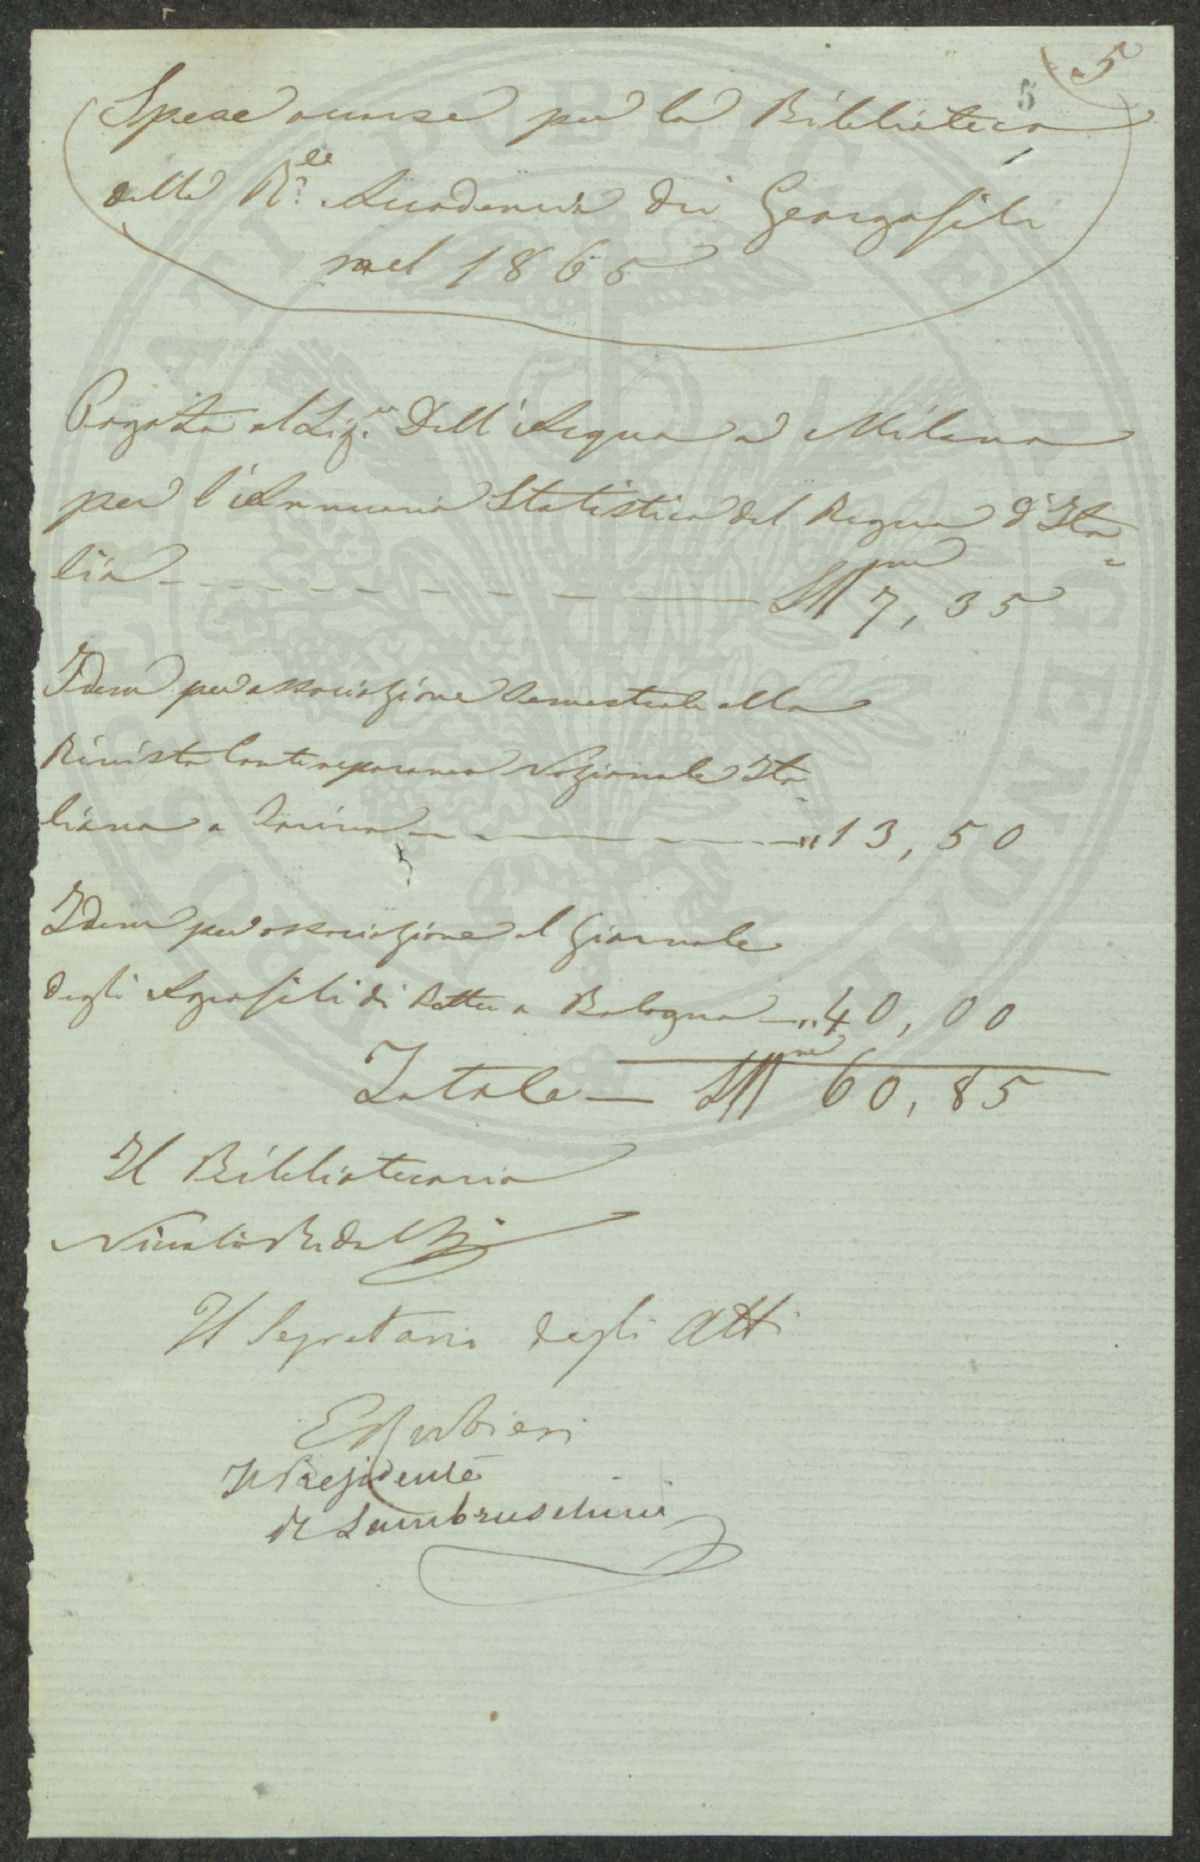 5
5
Spese occorse per la Biblioteca
della R.le Accademia dei Georgofili
nel 1865
Pagate al Sig.r Dell'Acqua a Milano
per l'Annuario Statistico del Regno d'Ita-
lia 7,35
Idem per associazione semestrale alla
Rivista Contemporanea Nazionale Ita-
liana a Torino " 13,50
Idem per associazione al Giornale
degli Agrofili di Botter a Bologna " 40,00
Totale 60,85
Il Bibliotecario
Il Segretario degli Atti
Il Presidente
R Lambruschini
PROSPERITATI PUBLICAE AUGENDAE